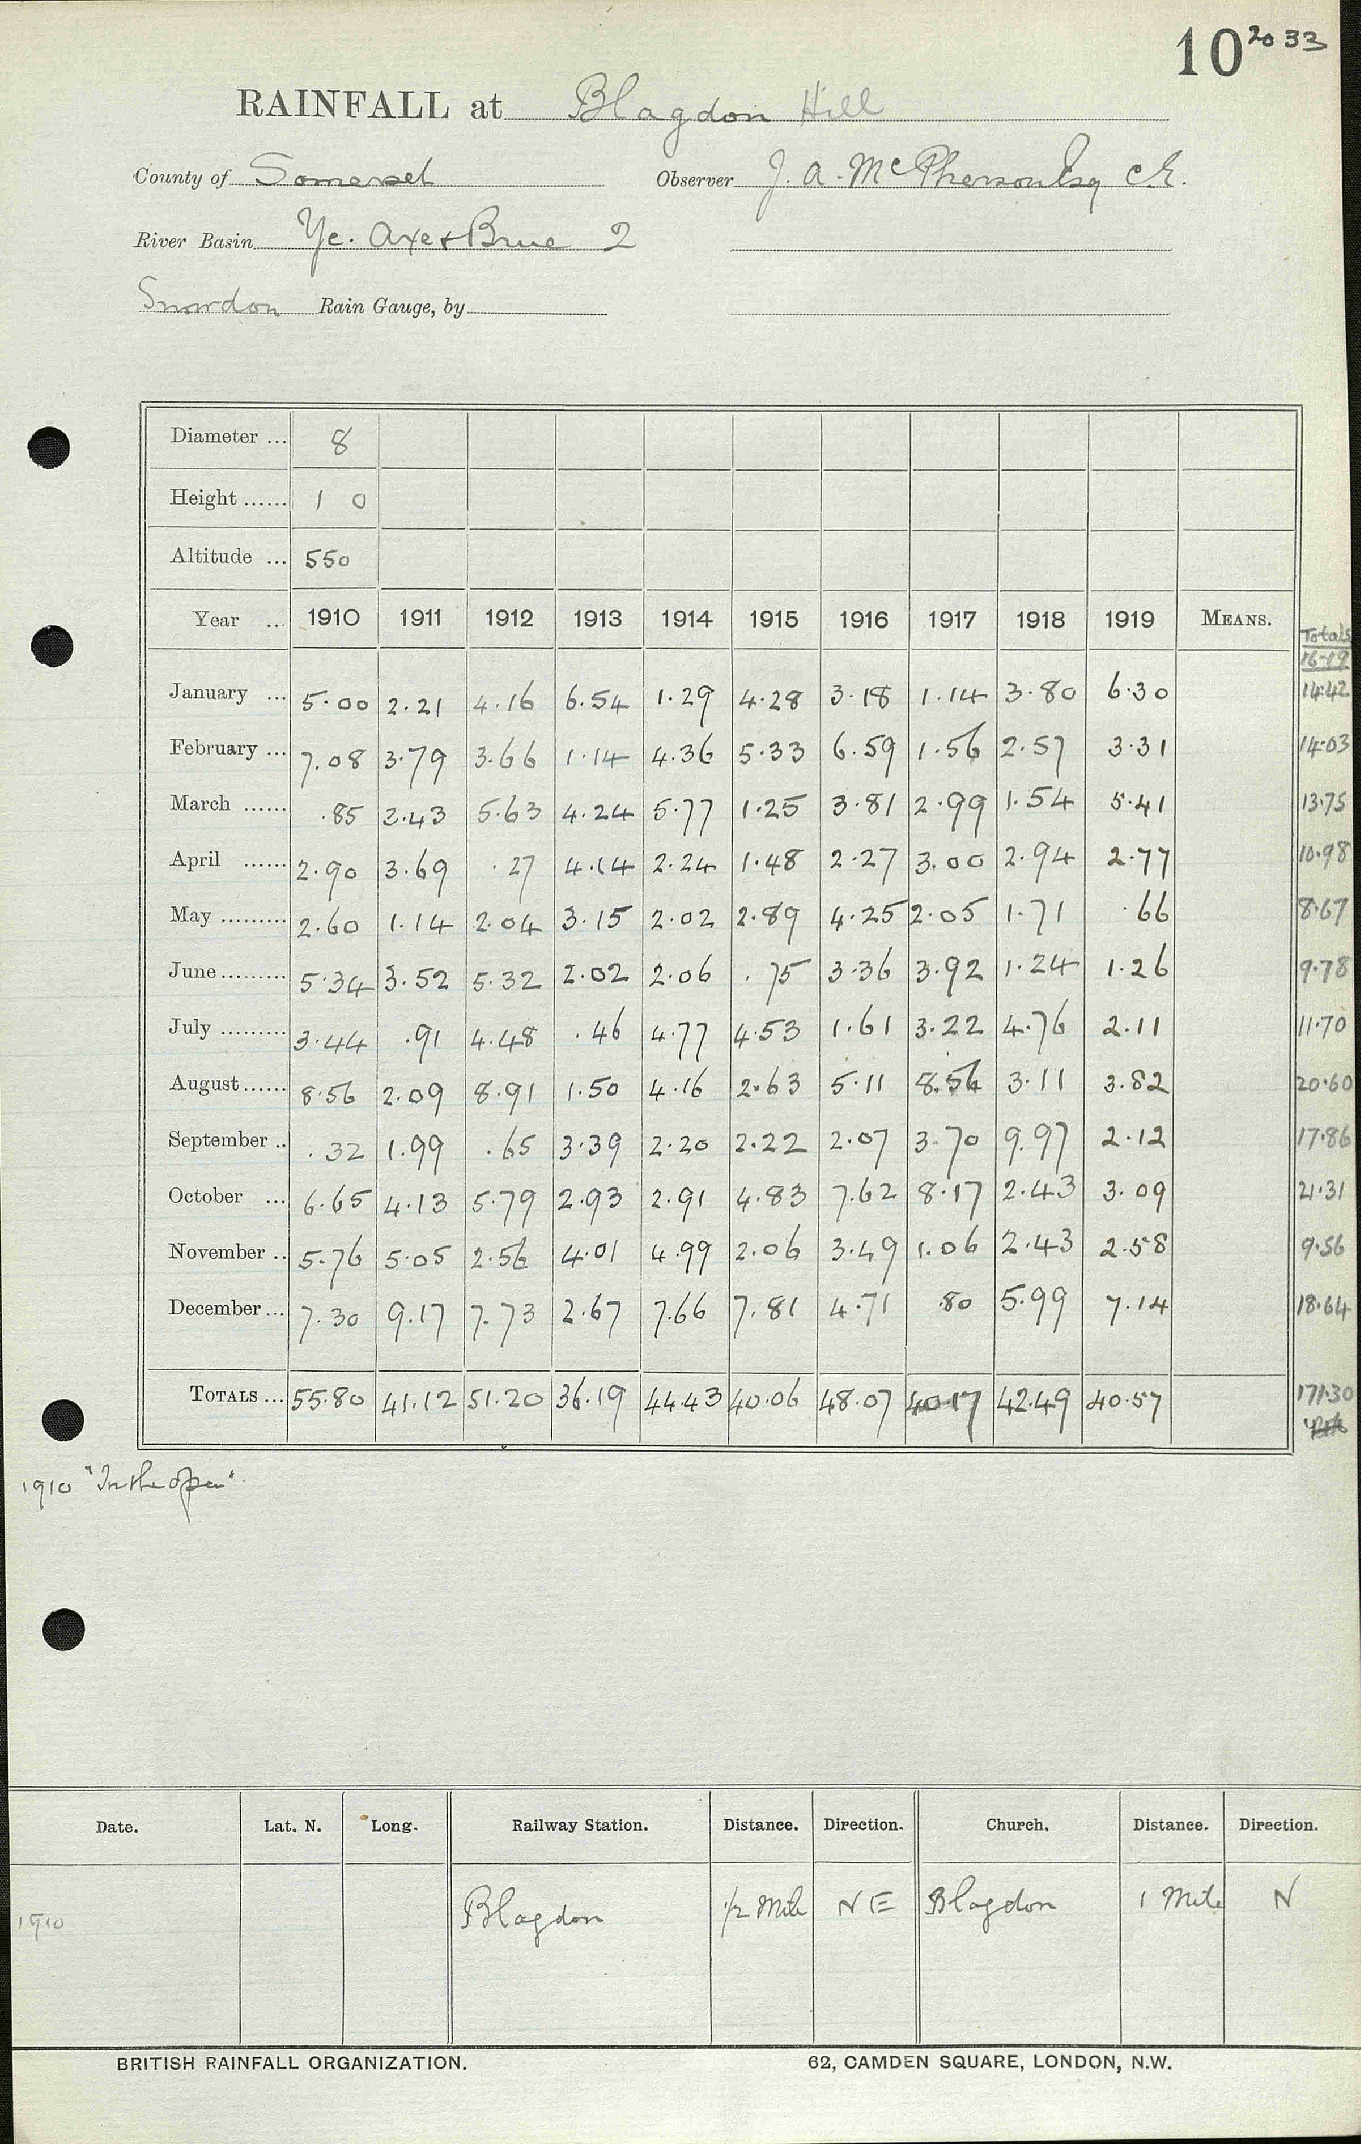 10 20 33
RAINFALL at Blagdon Hill
County of Somerset Observer J. A. McPherson Esq C.E.
River Basin Yc. Axe & Brue 2
Snowdon Rain Gauge, by
Diameter ... 8
Height ...... 1 0
Altitude ... 550
Year ... 1910 1911 1912 1913 1914 1915 1916 1917 1918 1919 MEANS. Totals
16-19
January ... 5.00 2.21 4.16 6.54 1.29 4.28 3.18 1.14 3.80 6.30 14.42
February ... 7.08 3.79 3.66 1.14 4.36 5.33 6.59 1.56 2.57 3.31 14.03
March ...... .85 3.43 5.63 4.24 5.77 1.25 3.81 2.99 1.54 5.41 13.75
April ...... 2.90 3.69 .27 4.14 2.24 1.48 2.27 3.00 2.94 2.77 10.98
May ......... 2.60 1.14 2.04 3.15 2.02 2.89 4.25 2.05 1.71 .66 8.67
June ......... 5.34 3.52 5.32 2.02 2.06 .75 3.36 3.92 1.24 1.26 9.78
July ......... 3.44 .91 4.48 .46 4.77 4.53 1.61 3.22 4.76 2.11 11.70
August ...... 8.56 2.09 8.91 1.50 4.16 2.63 5.11 8.56 3.11 3.82 20.60
September .. .32 1.99 .65 3.39 2.20 2.22 2.07 3.70 9.97 2.12 17.86
October ... 6.65 4.13 5.79 2.93 2.91 4.83 7.62 8.17 2.43 3.09 21.31
November .. 5.76 5.05 2.56 4.01 4.99 2.06 3.49 1.06 2.43 2.58 9.56
December ... 7.30 9.17 7.73 2.67 7.66 7.81 4.71 .80 5.99 7.14 18.64
TOTALS ... 55.80 41.12 51.20 36.19 44.43 40.06 48.07 40.17 42.49 40.57 171.30
1910 "In the open".
Date. Lat. N. Long. Railway Station. Distance. Direction. Church. Distance. Direction.
1910 Blagdon 1/2 Mile N E Blagdon 1 Mile N
BRITISH RAINFALL ORGANIZATION. 62, CAMDEN SQUARE, LONDON, N.W.